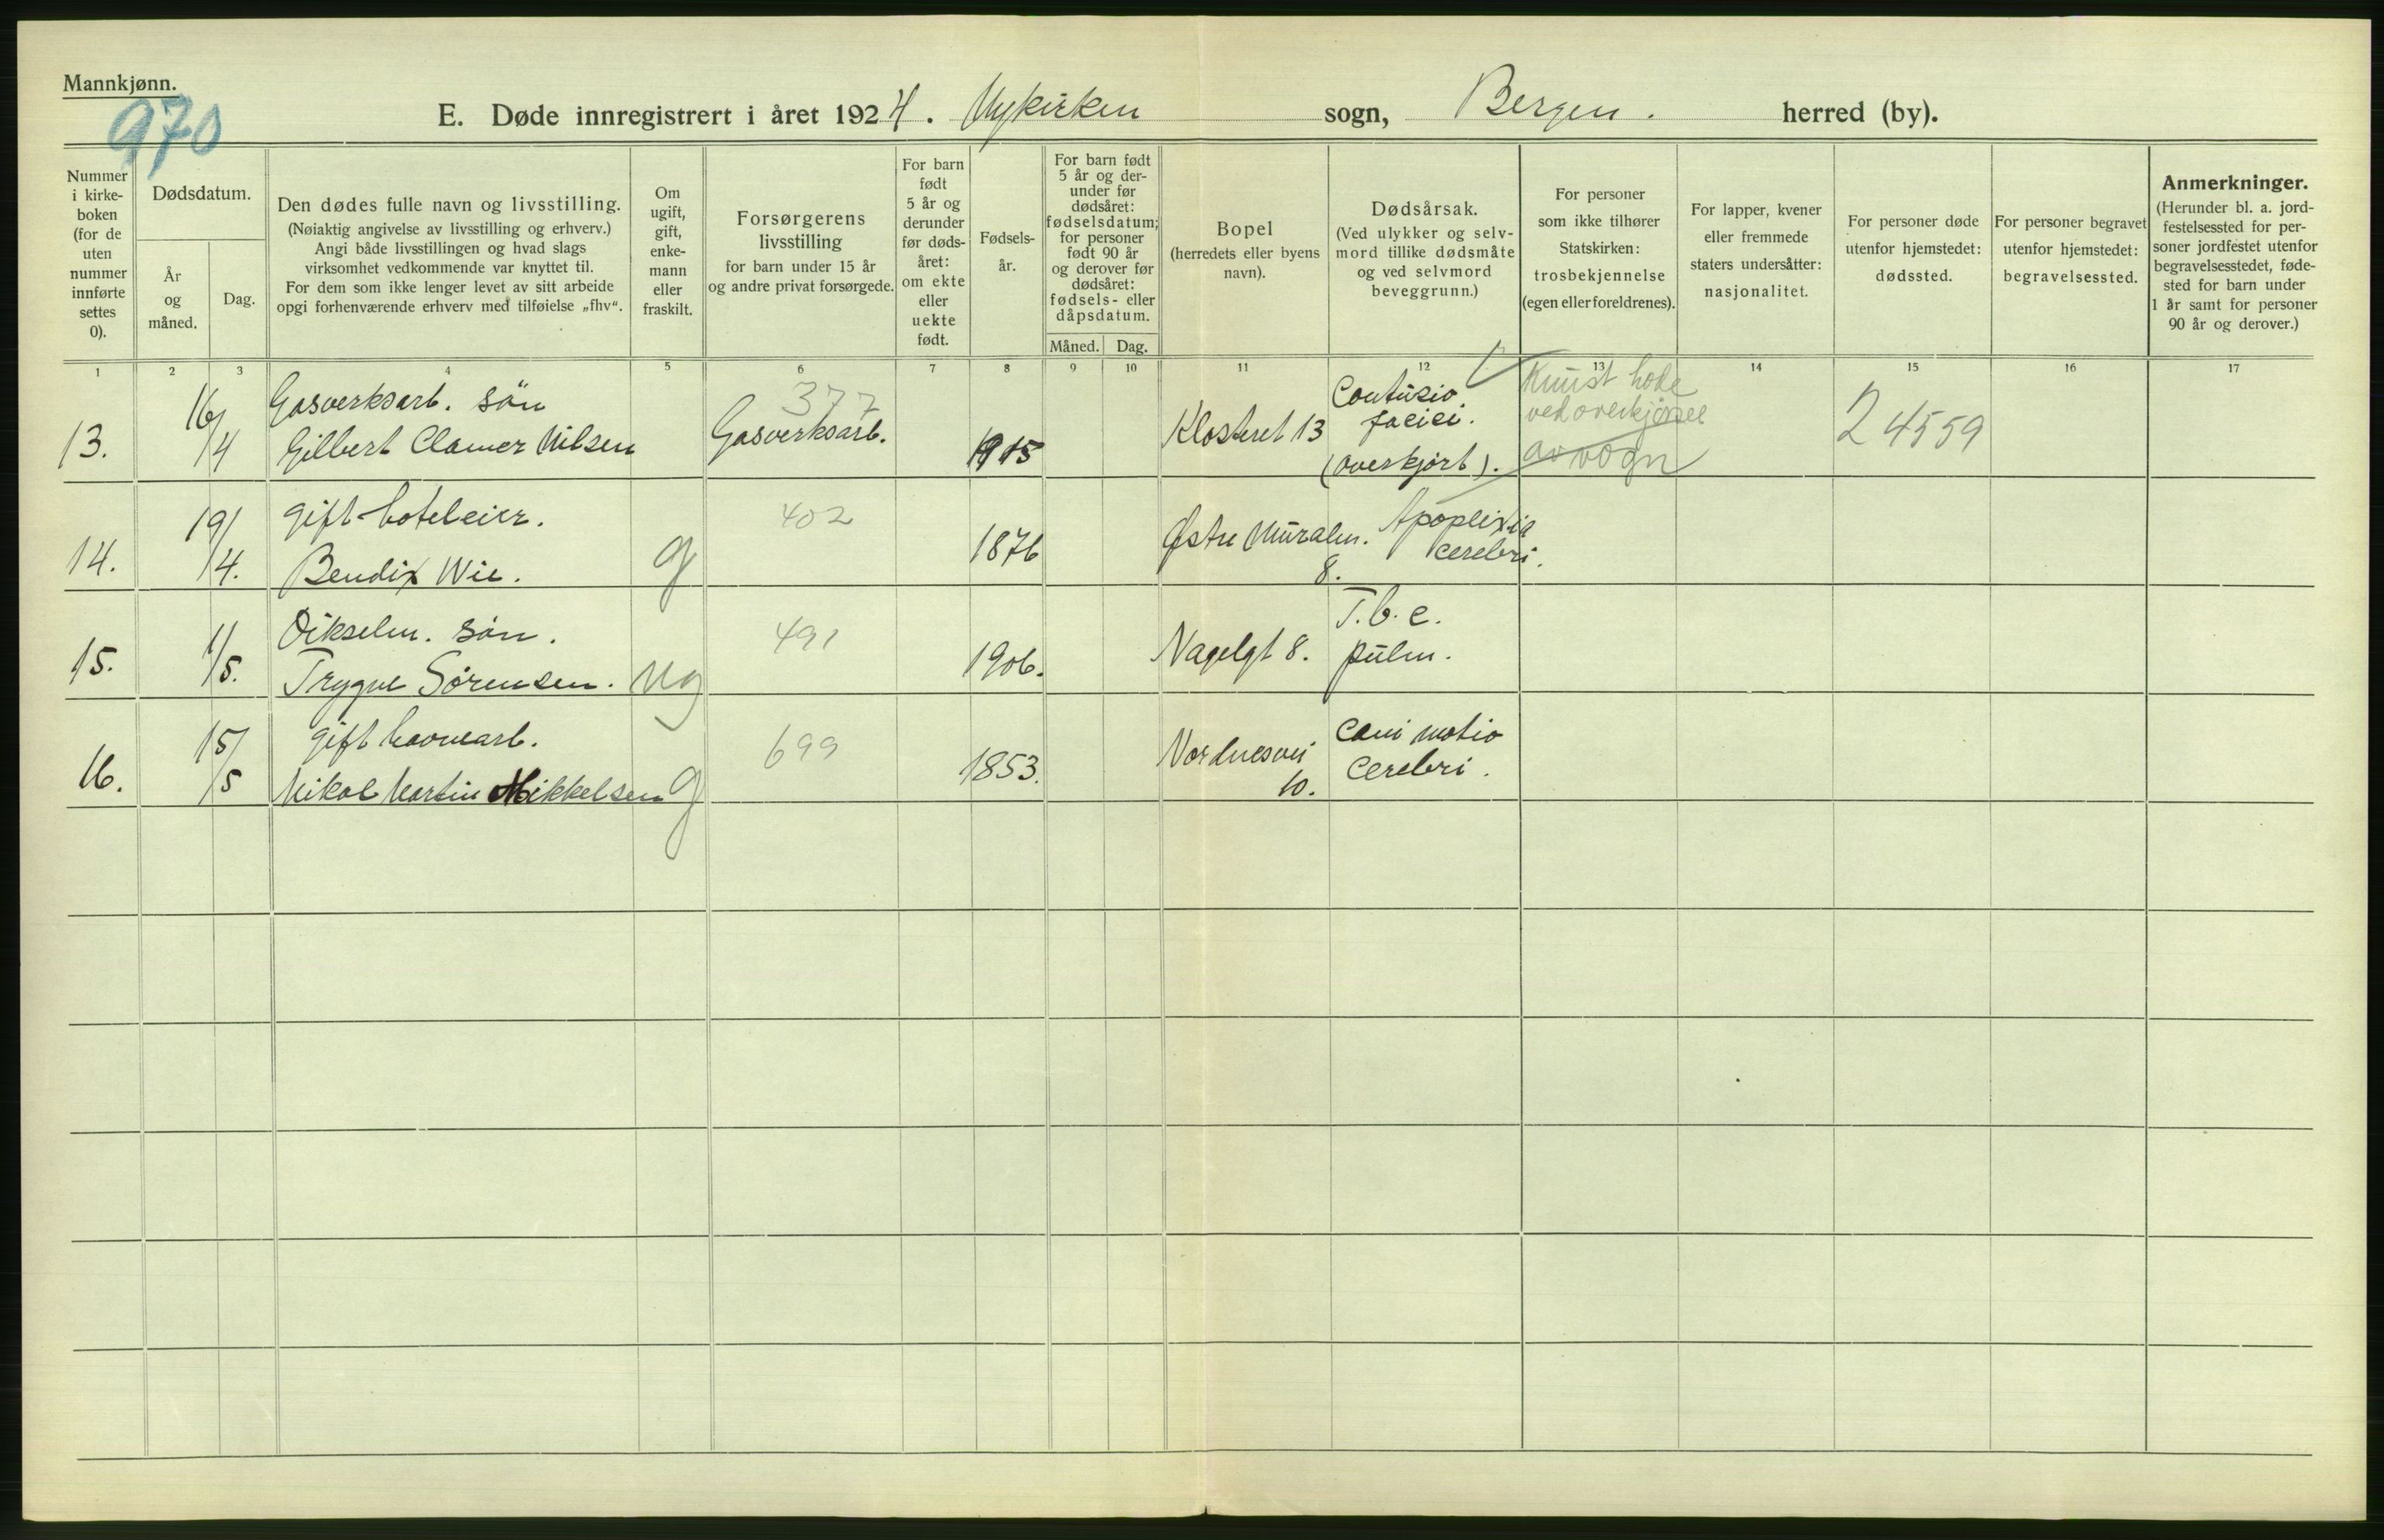 Mannkjønn.
970
E. Døde innregistrert i året 1924. Nykirken sogn, Bergen. herred (by).
Nummer i kirke- boken (for de uten nummer innførte settes 0).
Dødsdatum.
År og måned.
Dag.
Den dødes fulle navn og livsstilling.
(Nøiaktig angivelse av livsstilling og erhverv.)
Angi både livsstillingen og hvad slags
virksomhet vedkommende var knyttet til.
For dem som ikke lenger levet av sitt arbeide
opgi forhenværende erhverv med tilføielse „fhv“.
Om ugift, gift, enke- mann eller fraskilt.
Forsørgerens
livsstilling
for barn under 15 år
og andre privat forsørgede.
For barn født 5 år og derunder før døds- året: om ekte eller uekte født.
Fødsels- år.
For barn født 5 år og der- under før dødsåret: fødselsdatum; for personer født 90 år og derover før dødsåret: fødsels- eller dåpsdatum.
Måned. Dag.
Bopel
(herredets eller byens
navn).
Dødsårsak.
(Ved ulykker og selv-
mord tillike dødsmåte
og ved selvmord
beveggrunn.)
For personer
som ikke tilhører
Statskirken:
trosbekjennelse
(egen eller foreldrenes).
For lapper, kvener
eller fremmede
staters undersåtter:
nasjonalitet.
For personer døde
utenfor hjemstedet:
dødssted.
For personer begravet
utenfor hjemstedet:
begravelsessted.
Anmerkninger.
(Herunder bl. a. jord-
festelsessted for per-
soner jordfestet utenfor
begravelsesstedet, føde-
sted for barn under
1 år samt for personer
90 år og derover.)
1 2 3 4 5 6 7 8 9 10 11 12 13 14 15 16 17
13. 16/4 Gasverksarb. sön
Gilbert Clamer Nilsen
377
Gasverksarb.
1915
Klosteret 13
Contusio
faciei.
(overkjørt).
Knust hode
ved overkjørsel
av vogn
24559
14. 19/4. gift hoteleier.
Bendix Wie.
g
402
1876
Østre Muralm.
8.
Apoplexia
cerebri.
15. 1/5. Oikselm. sön.
Trygve Sørensen.
ug
491
1906.
Nagelgt 8.
T.b.c.
pulm.
16. 15/5 gift havnearb.
Nikol Martin Mikkelsen
g
699
1853.
Nordnesvei
10.
Comi motio
Cerebri.